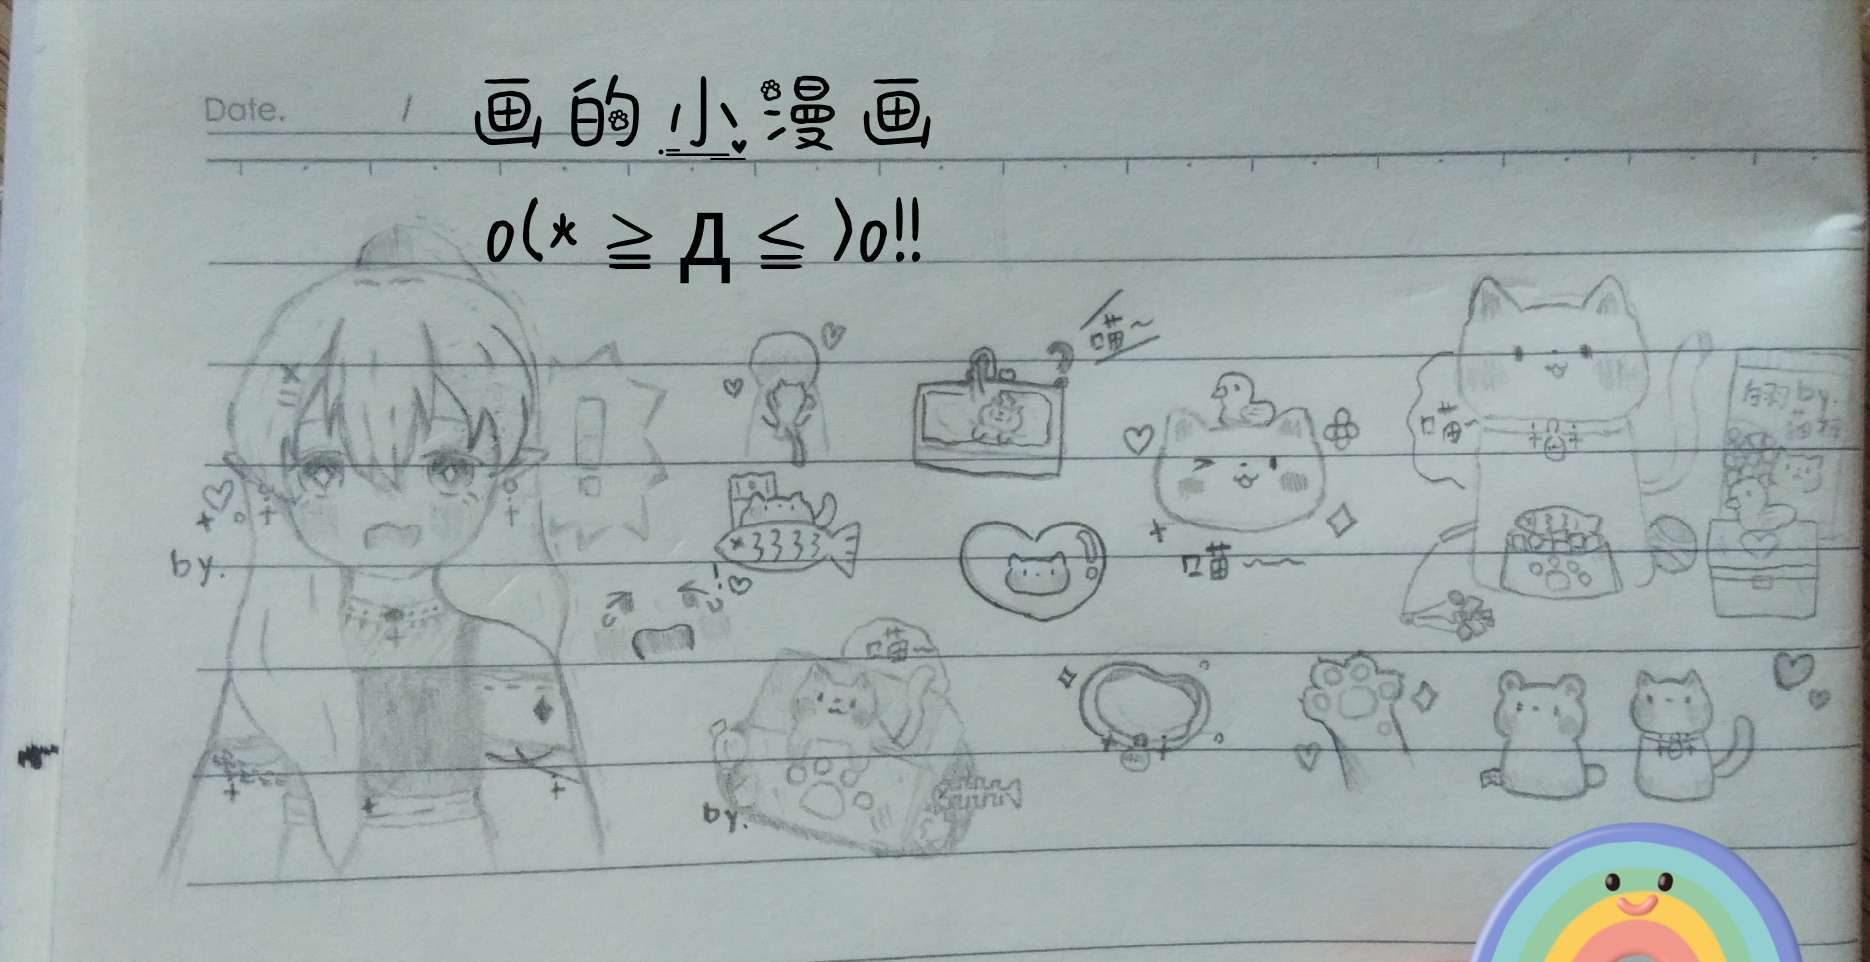 Date. /
画的小漫画
o(* ≧ Д ≦ )o!!
喵~
喵~
by.
喵~~
喵~
by.